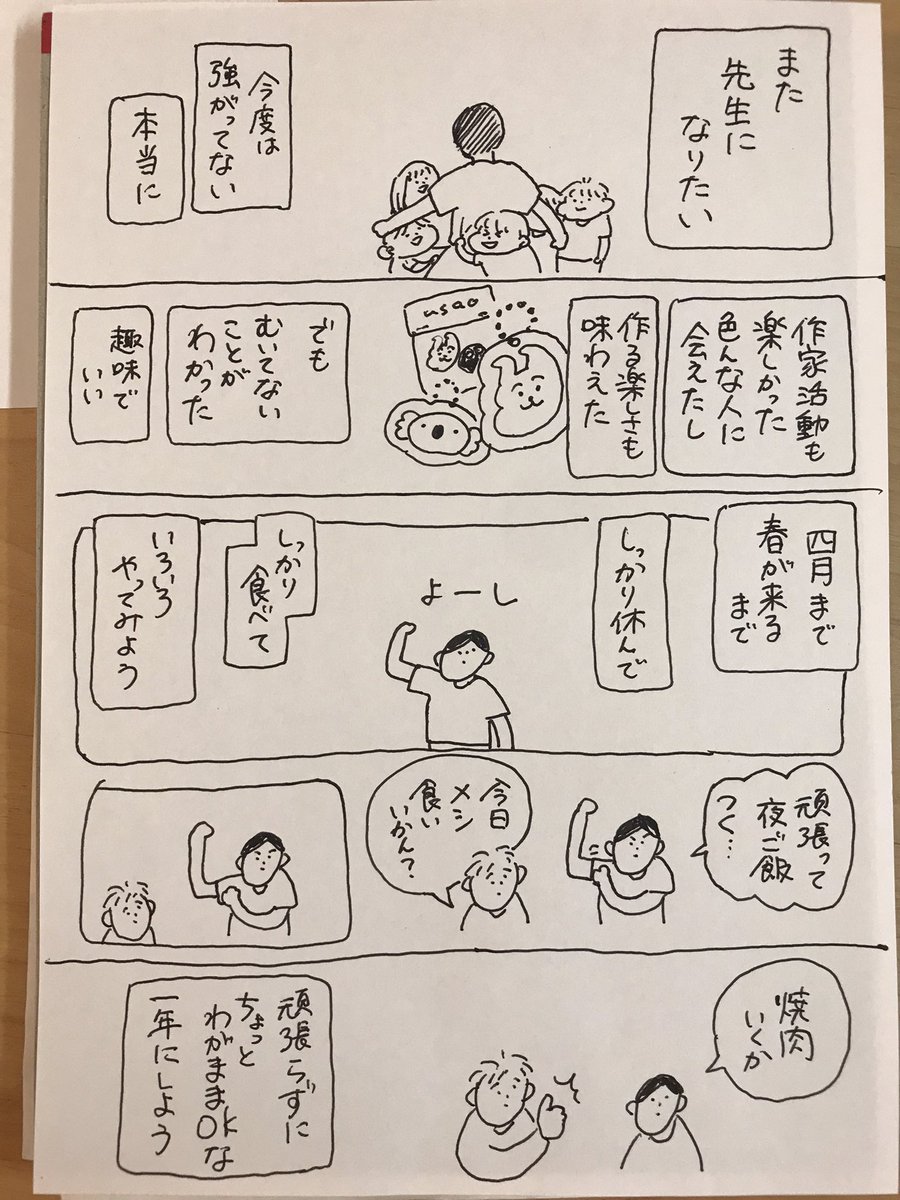 また
先生に
なりたい
今度は
強がってない
本当に
作家活動も
楽しかった
色んな人に
会えたし
作る楽しさも
味わえた
usao
でも
むいてない
ことが
わかった
趣味で
いい
四月まで
春が来る
まで
しっかり休んで
よーし
しっかり
食べて
いろいろ
やってみよう
頑張って
夜ご飯
つく…
今日
メシ
食い
いかんて?
焼肉
いくか
頑張らずに
ちょっと
わがままOkな
一年にしよう